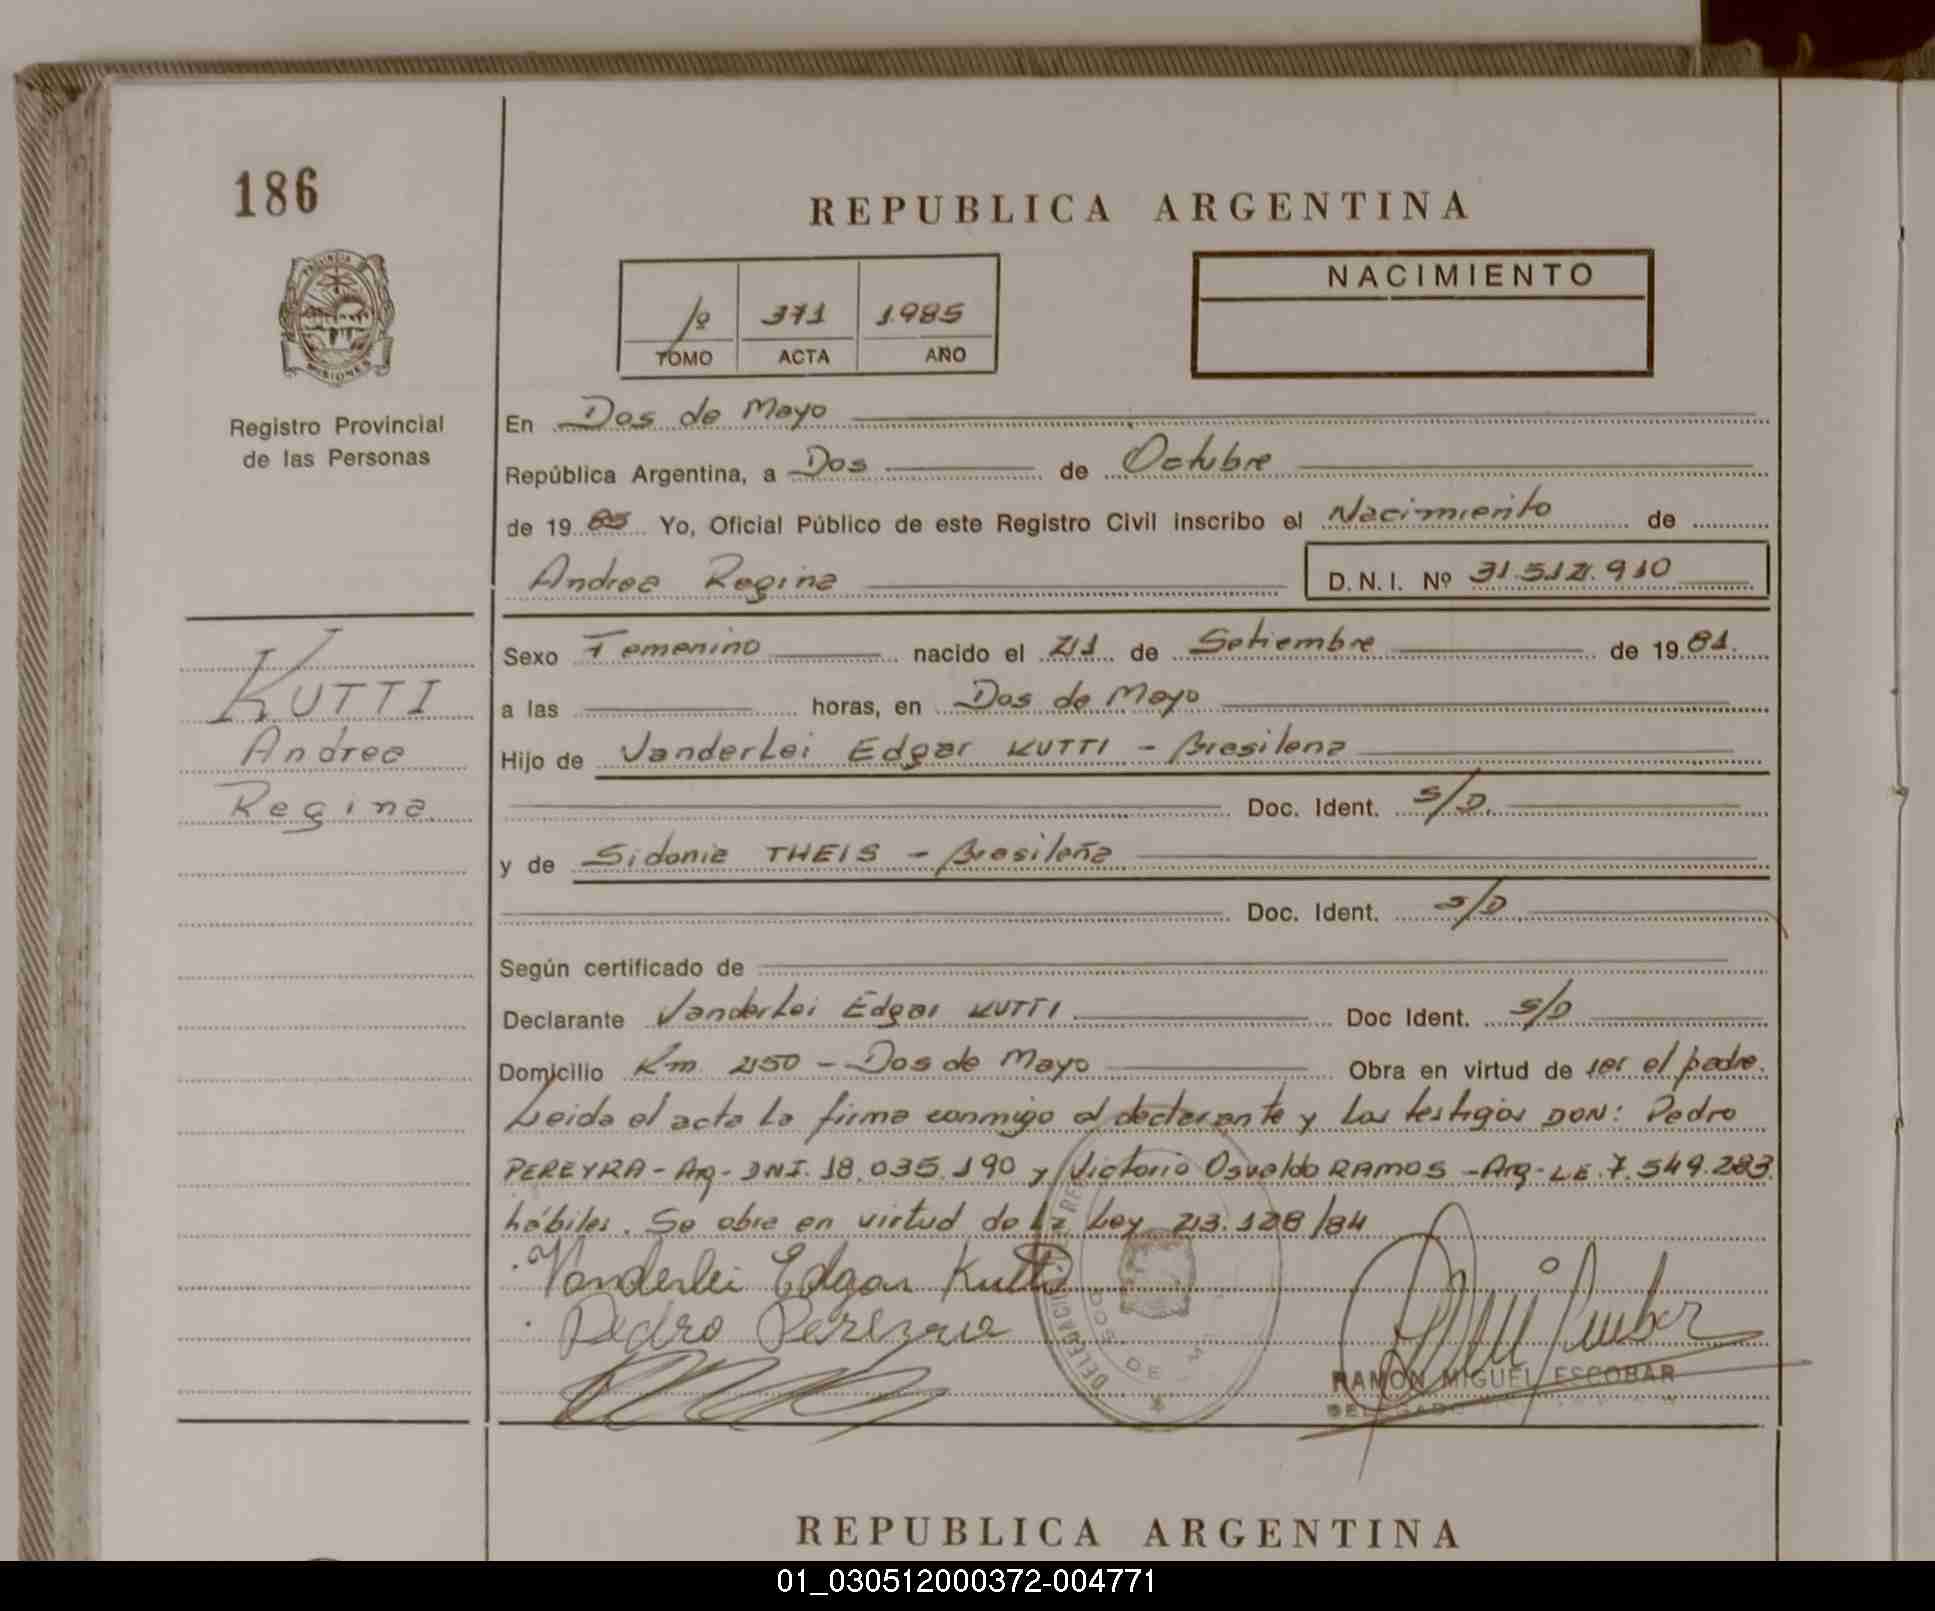 186
REPUBLICA ARGENTINA
PROVINCIA
MISIONES
Registro Provincial
de las Personas
1º 371 1.985
TOMO ACTA AÑO
NACIMIENTO
En Dos de Mayo
República Argentina, a Dos de Octubre
de 19 85 Yo, Oficial Público de este Registro Civil inscribo el Nacimiento de
Andrea Regina D.N.I. Nº 31.512.910
KUTTI
Andrea
Regina
Sexo Femenino nacido el 21 de Setiembre de 19 81.
a las horas, en Dos de Mayo
Hijo de Vanderlei Edgar KUTTI - Brasilena
Doc. Ident. S/D.
y de Sidonia THEIS - Brasileña
Doc. Ident. S/D
Según certificado de
Declarante Vanderlei Edgar KUTTI Doc Ident. S/D
Domicilio Km. 250 - Dos de Mayo Obra en virtud de ser el padre.
Leida el acta la firma conmigo el declarante y los testigos DON: Pedro
PEREYRA - Arg - DNI. 18.035.190 y Victorio Osvaldo RAMOS - Arg - LE. 7.549.283
hábiles. Se obra en virtud de la Ley 23.128/84
Vanderlei Edgar Kutti
Pedro Pereyra
DE
RAMON MIGUEL ESCOBAR
DELEGADO
REPUBLICA ARGENTINA
01_030512000372-004771